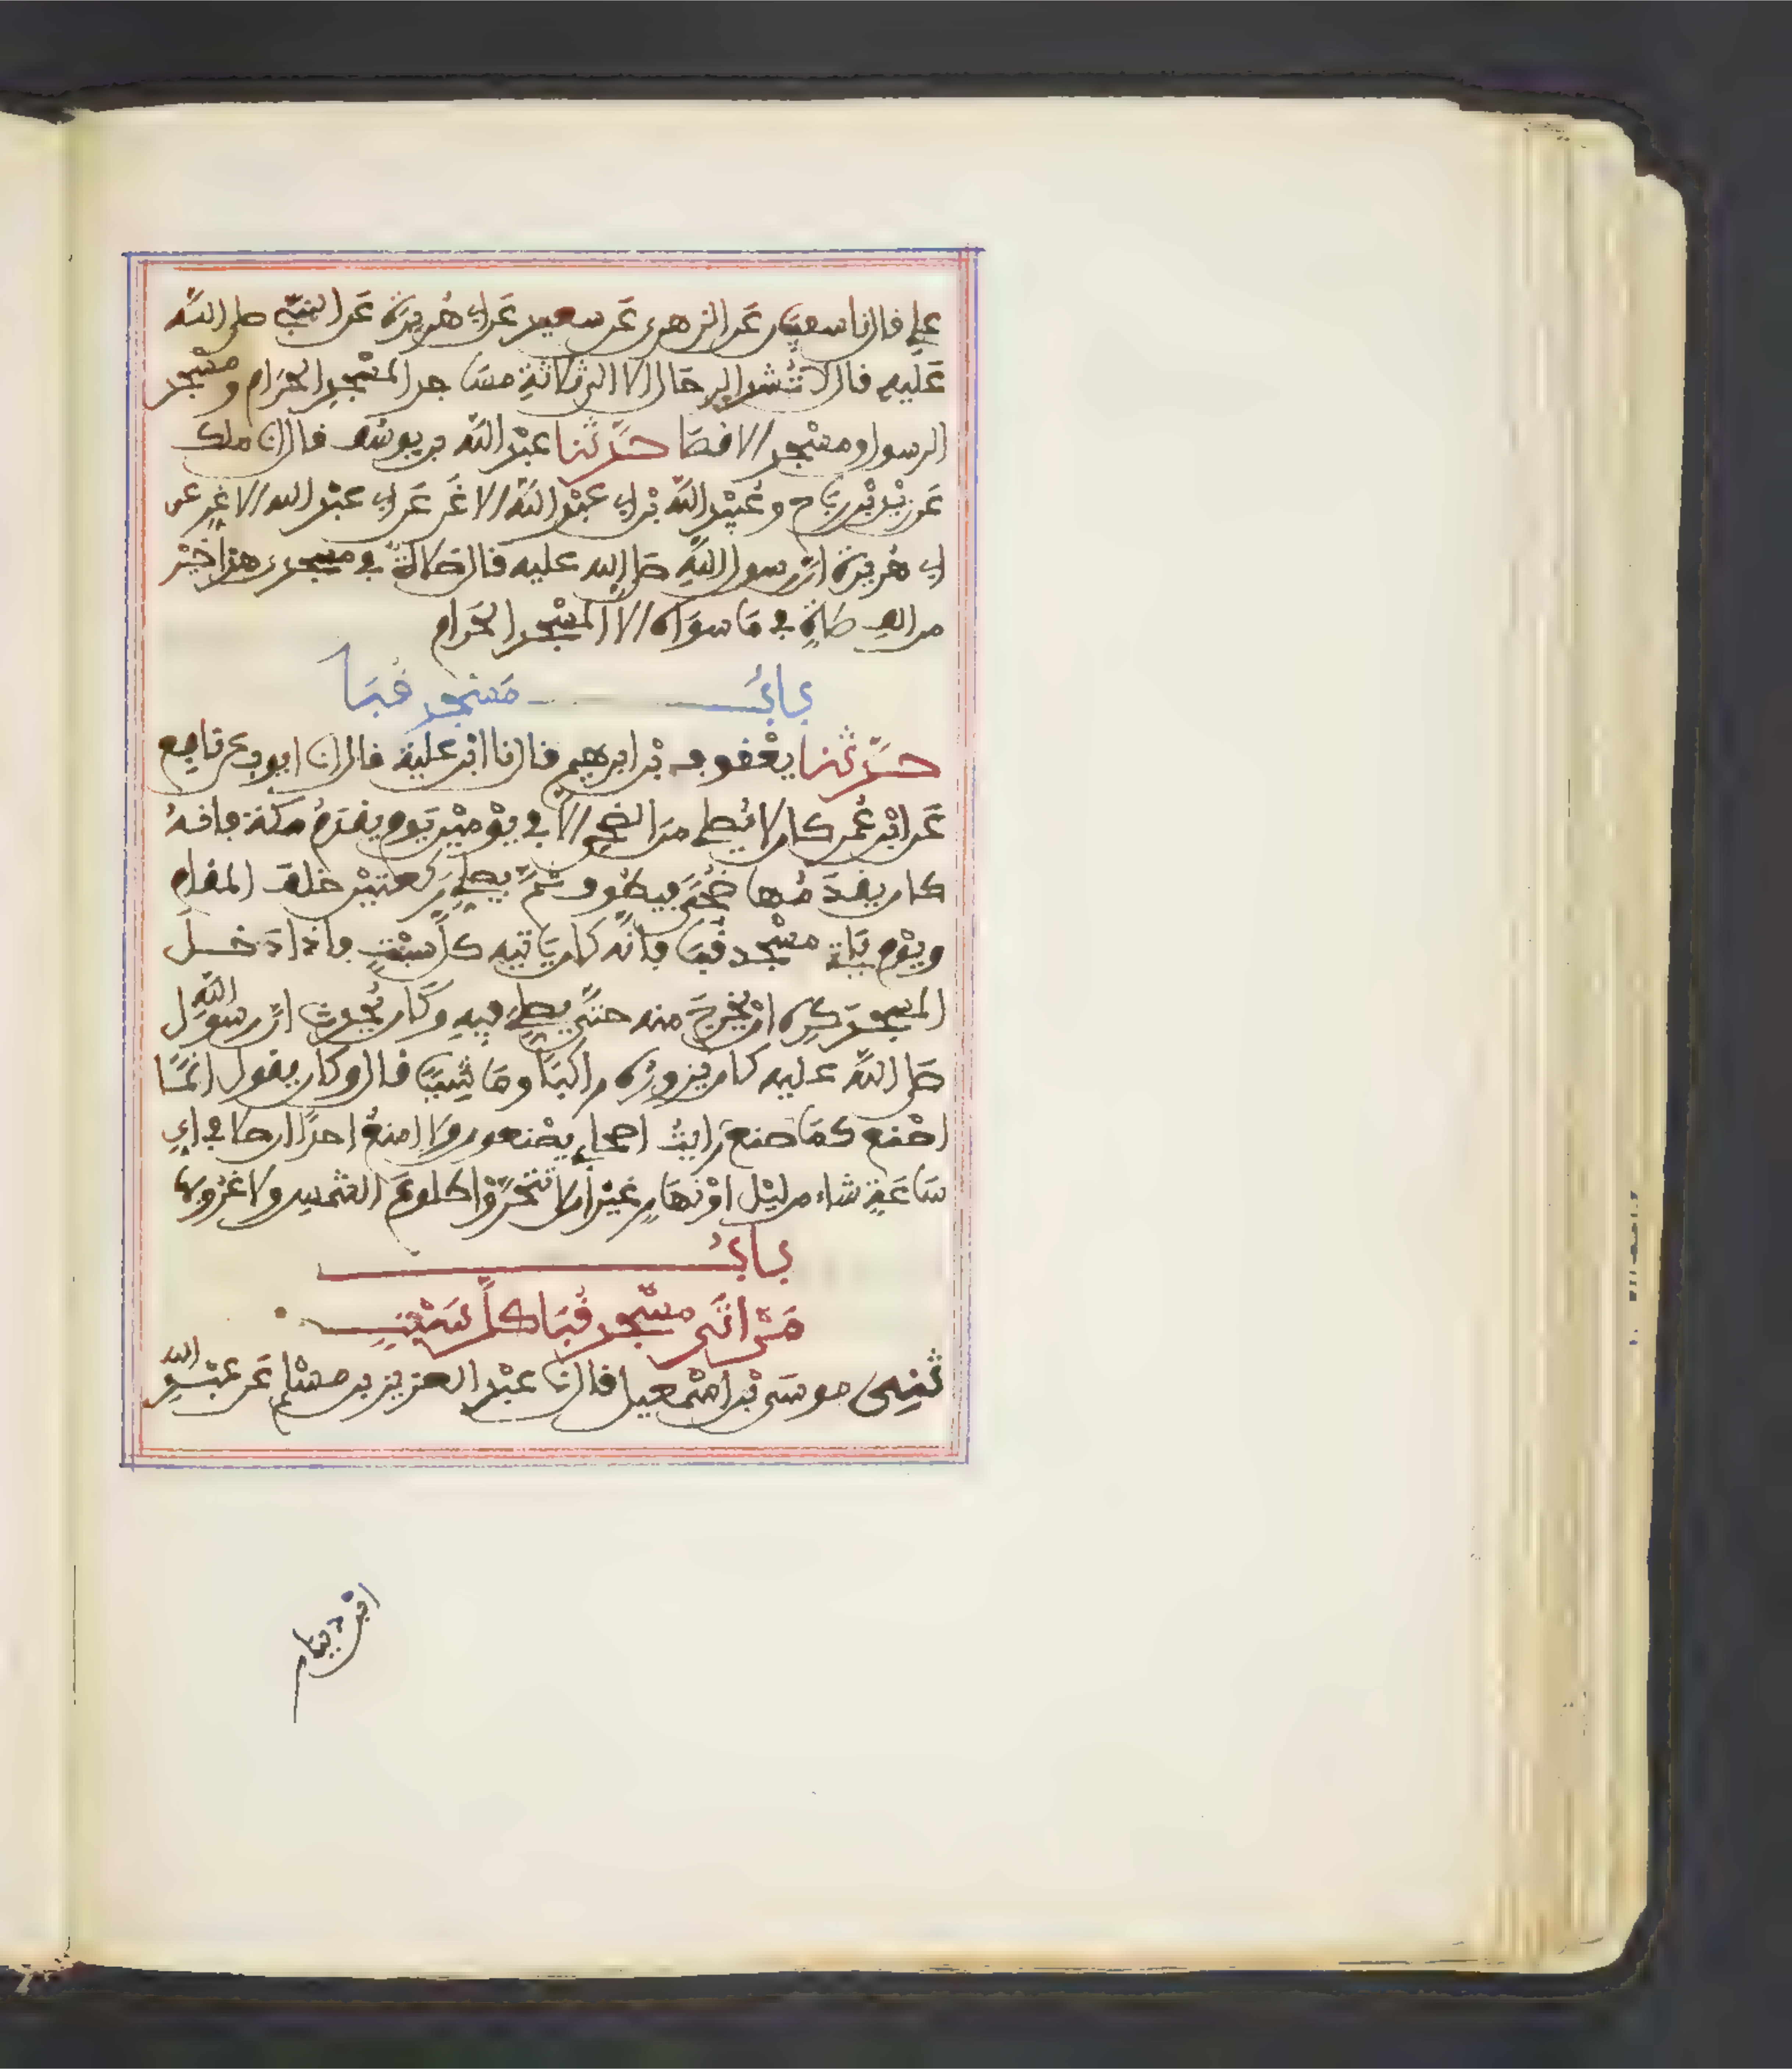 علي قال نا سعيان عن الزهري عن سعيد عن ابي هريرة عن النبي صلى الله
عليه قال لا تشد الرحال الا الى ثلاثة مساجد المسجد الحرام ومسجد
الرسول ومسجد الاقصا حدثنا عبد الله بن يوسف قال انا ملك
عن زيد بن رباح وعبيد الله بن ابي عبد الله الاغر عن ابي عبد الله الاغر عن
ابي هريرة ان رسول الله صلى الله عليه قال صلاة في مسجدي هذا خير
من الف صلاة في ما سواه الا المسجد الحرام
باب مسجد قبا
حدثنا يعقوب بن ابرهيم قال نا ابن علية قال انا ايوب عن نافع
عن ابن عمر كان لا يصلي من الضحى الا في يومين يوم يقدم مكة فانه
كان يقدمها ضحى فيطوف ثم يصلي ركعتين خلف المقام
ويوم ياتي مسجد قبا فانه كان ياتيه كل سبت فاذا دخل
المسجد كره ان يخرج منه حتى يصلي فيه وكان يحدث ان رسول الله
صلى الله عليه كان يزوره راكبا وماشيا قال وكان يقول انما
اصنع كما صنع رايت اصحابي يصنعون ولا امنع احدا ان صلى في اي
ساعة شاء من ليل او نهار غير ان لا تتحروا طلوع الشمس ولا غروبها
باب
من اتى مسجد قبا كل سبت
ثني موسى بن اسمعيل قال نا عبد العزيز بن مسلم عن عبد الله
ابن دينار